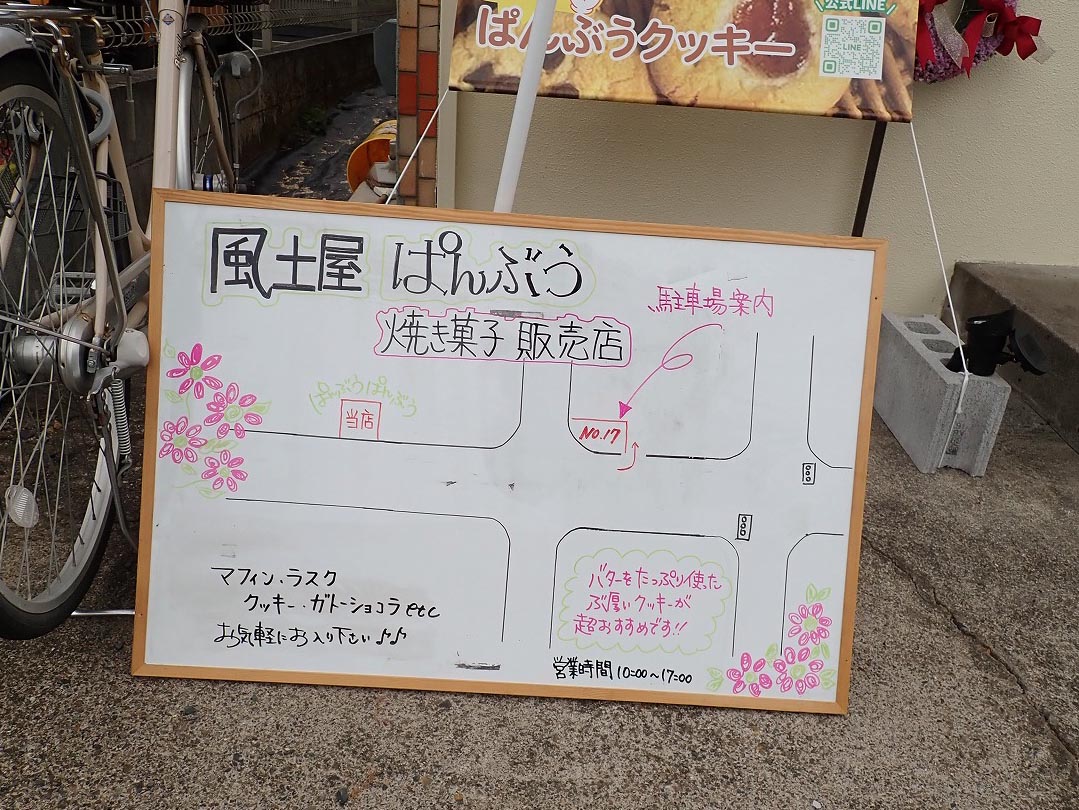 公式LINE
ぱんぶうクッキー
LINE
風土屋 ぱんぶう
焼き菓子 販売店
駐車場案内
ぱんぶうぱんぶう
当店
NO.17
マフィン・ラスク
クッキー・ガトーショコラ etc
お気軽にお入り下さい♪♪
バターをたっぷり使った
ぶ厚いクッキーが
超おすすめです!!
営業時間 10:00～17:00